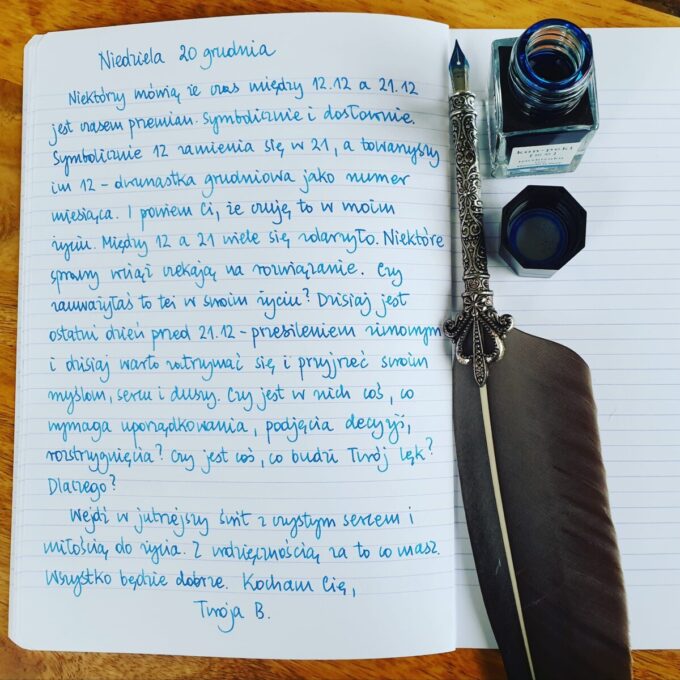 Niedziela 20 grudnia
Niektórzy mówią że czas między 12.12 a 21.12
jest czasem przemian. Symbolicznie i dosłownie.
Symbolicznie 12 zamienia się w 21, a towarzyszy
im 12 - dwunastka grudniowa jako numer
miesiąca. I powiem Ci, że czuję to w moim
życiu. Między 12 a 21 wiele się zdarzyło. Niektóre
sprawy wciąż czekają na rozwiązanie. Czy
zauważyłaś to też w swoim życiu? Dzisiaj jest
ostatni dzień przed 21.12 - przesileniem zimowym
i dzisiaj warto zatrzymać się i przyjrzeć swoim
myślom, sercu i duszy. Czy jest w nich coś, co
wymaga uporządkowania, podjęcia decyzji,
rozstrzygnięcia? Czy jest coś, co budzi Twój lęk?
Dlaczego?
Wejdź w jutrzejszy świt z czystym sercem i
miłością do życia. Z wdzięcznością za to co masz.
Wszystko będzie dobrze. Kocham Cię,
Twoja B.
kon-peki